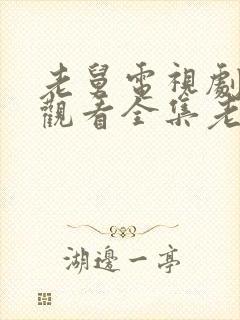 老舅電視劇
觀看全集老
湖邊一亭